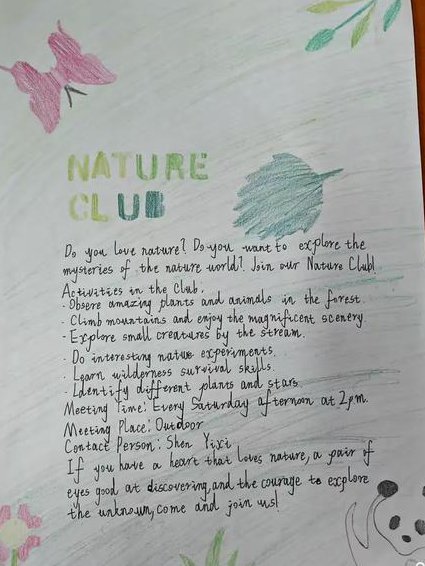 NATURE
CLUB
Do you love nature? Do you want to explore the
mysteries of the nature world? Join our Nature Club!
Activities in the Club:
· Obsere amazing plants and animals in the forest.
· Climb mountains and enjoy the magnificent scenery
· Explore small creatures by the stream.
· Do interesting nature experiments.
· Learn wilderness survival skills.
· Identify different plants and stars.
Meeting Time: Every Saturday afternoon at 2 p.m.
Meeting Place: Outdoor
Contact Person: Shen Yixi
If you have a heart that loves nature, a pair of
eyes good at discovering, and the courage to explore
the unknown, come and join us!